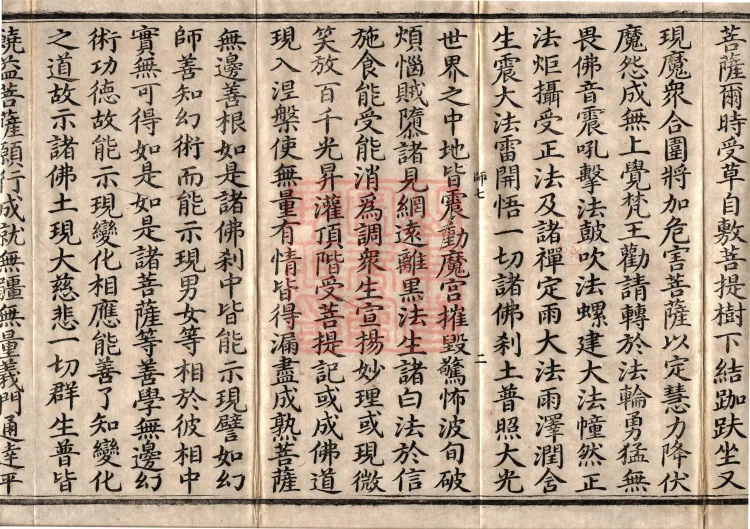 菩薩爾時受草自敷菩提樹下結跏趺坐又
現魔衆合圍將加危害菩薩以定慧力降伏
魔怨成無上覺梵王勸請轉於法輪勇猛無
畏佛音震吼擊法鼓吹法螺建大法幢然正
法炬攝受正法及諸禪定雨大法雨澤潤含
生震大法雷開悟一切諸佛刹土普照大光
師七
二
世界之中地皆震動魔宮摧毀驚怖波旬破
煩惱賊隳諸見網遠離黑法生諸白法於信
施食能受能消爲調衆生宣揚妙理或現微
笑放百千光昇灌頂階受菩提記或成佛道
現入涅槃使無量有情皆得漏盡成熟菩薩
無邊善根如是諸佛刹中皆能示現譬如幻
師善知幻術而能示現男女等相於彼相中
實無可得如是如是諸菩薩等善學無邊幻
術功德故能示現變化相應能善了知變化
之道故示諸佛土現大慈悲一切群生普皆
饒益菩薩願行成就無疆無量義門通達平